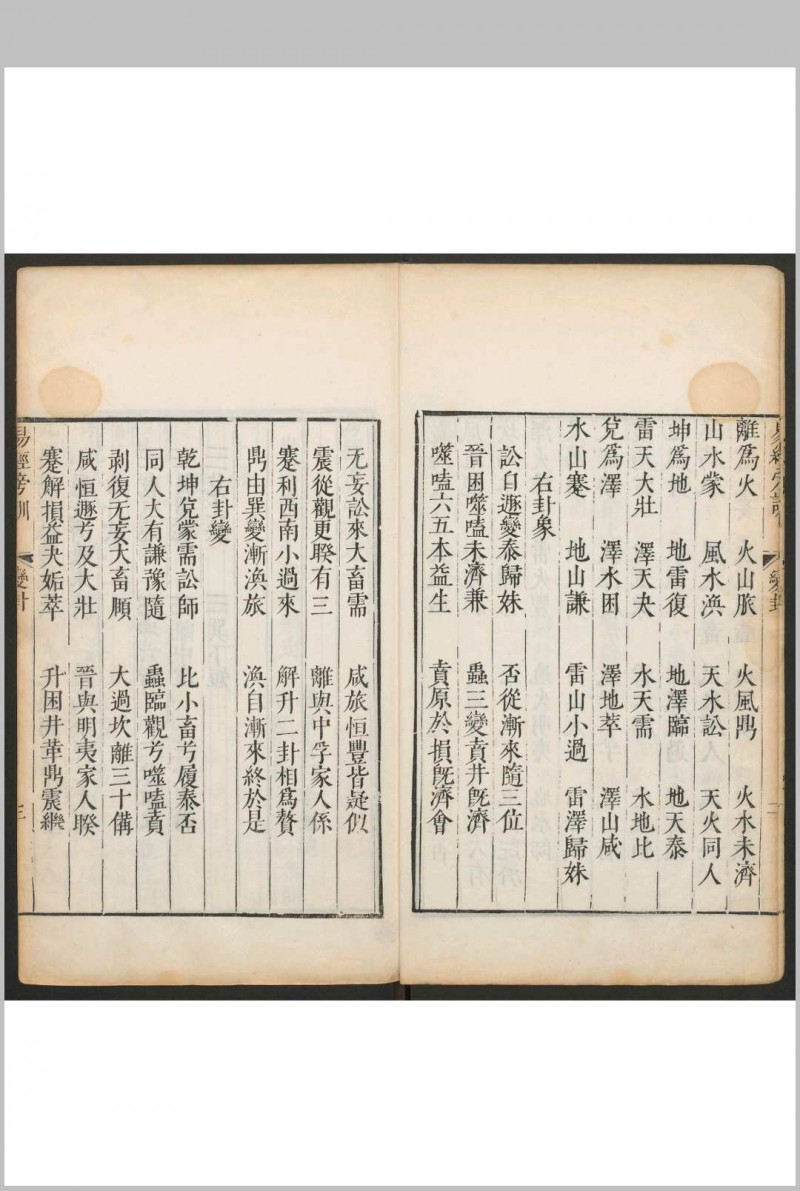 離爲火　火山旅　火風鼎　火水未濟
山水蒙　風水渙　天水訟　天火同人
坤爲地　地雷復　地澤臨　地天泰
雷天大壯　澤天夬　水天需　水地比
兌爲澤　澤水困　澤地萃　澤山咸
水山蹇　地山謙　雷山小過　雷澤歸妹
右卦象
訟自遯變泰歸妹　否從漸來隨三位
晉困噬嗑未濟兼　蠱三變賁井旣濟
噬嗑六五本益生　賁原於損旣濟會
无妄訟來大畜需　咸旅恒豐皆疑似
震從觀更睽有三　離與中孚家人係
蹇利西南小過來　解升二卦相爲贅
鼎由巽變漸渙旅　渙自漸來終於是
右卦變
乾坤屯蒙需訟師　比小畜兮履泰否
同人大有謙豫隨　蠱臨觀兮噬嗑賁
剥復无妄大畜頤　大過坎離三十備
咸恒遯兮及大壯　晉與明夷家人睽
蹇解損益夬姤萃　升困井革鼎震繼
易經旁訓　三